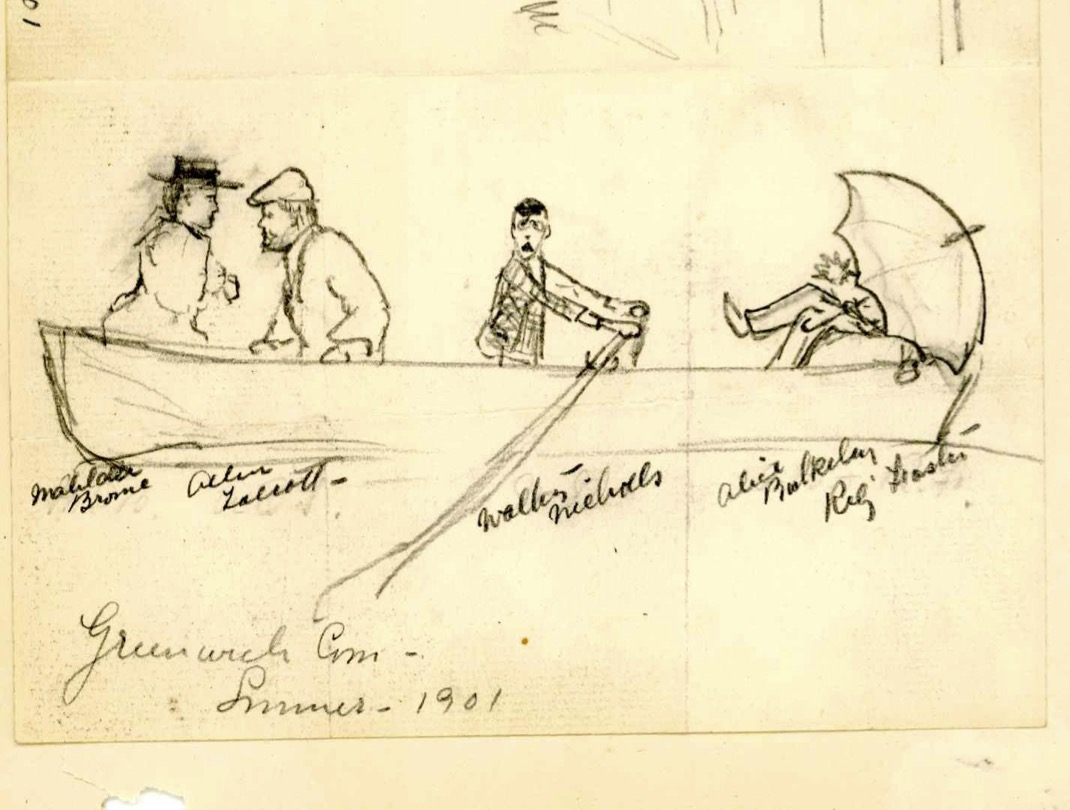 Matilda
Browne
Allen
Talcott -
Walter
Nicholls
Alice
Bulkeley
Greenwich Conn -
Summer - 1901